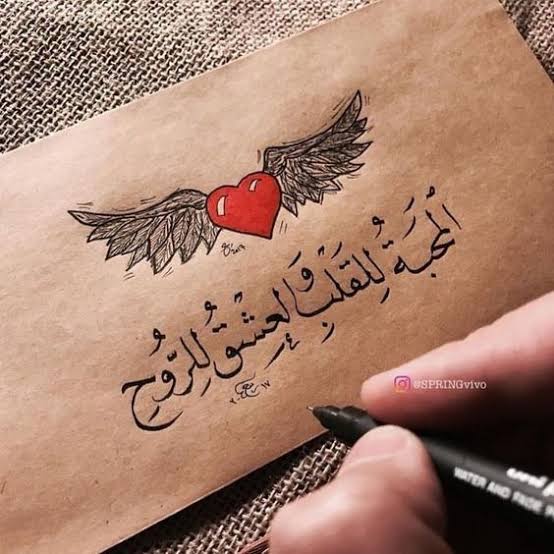 المحبَة لِلقَلبِ وَالعِشْق لِلرّوُحِ
@SPRINGvivo
uni
WATER AND FADE